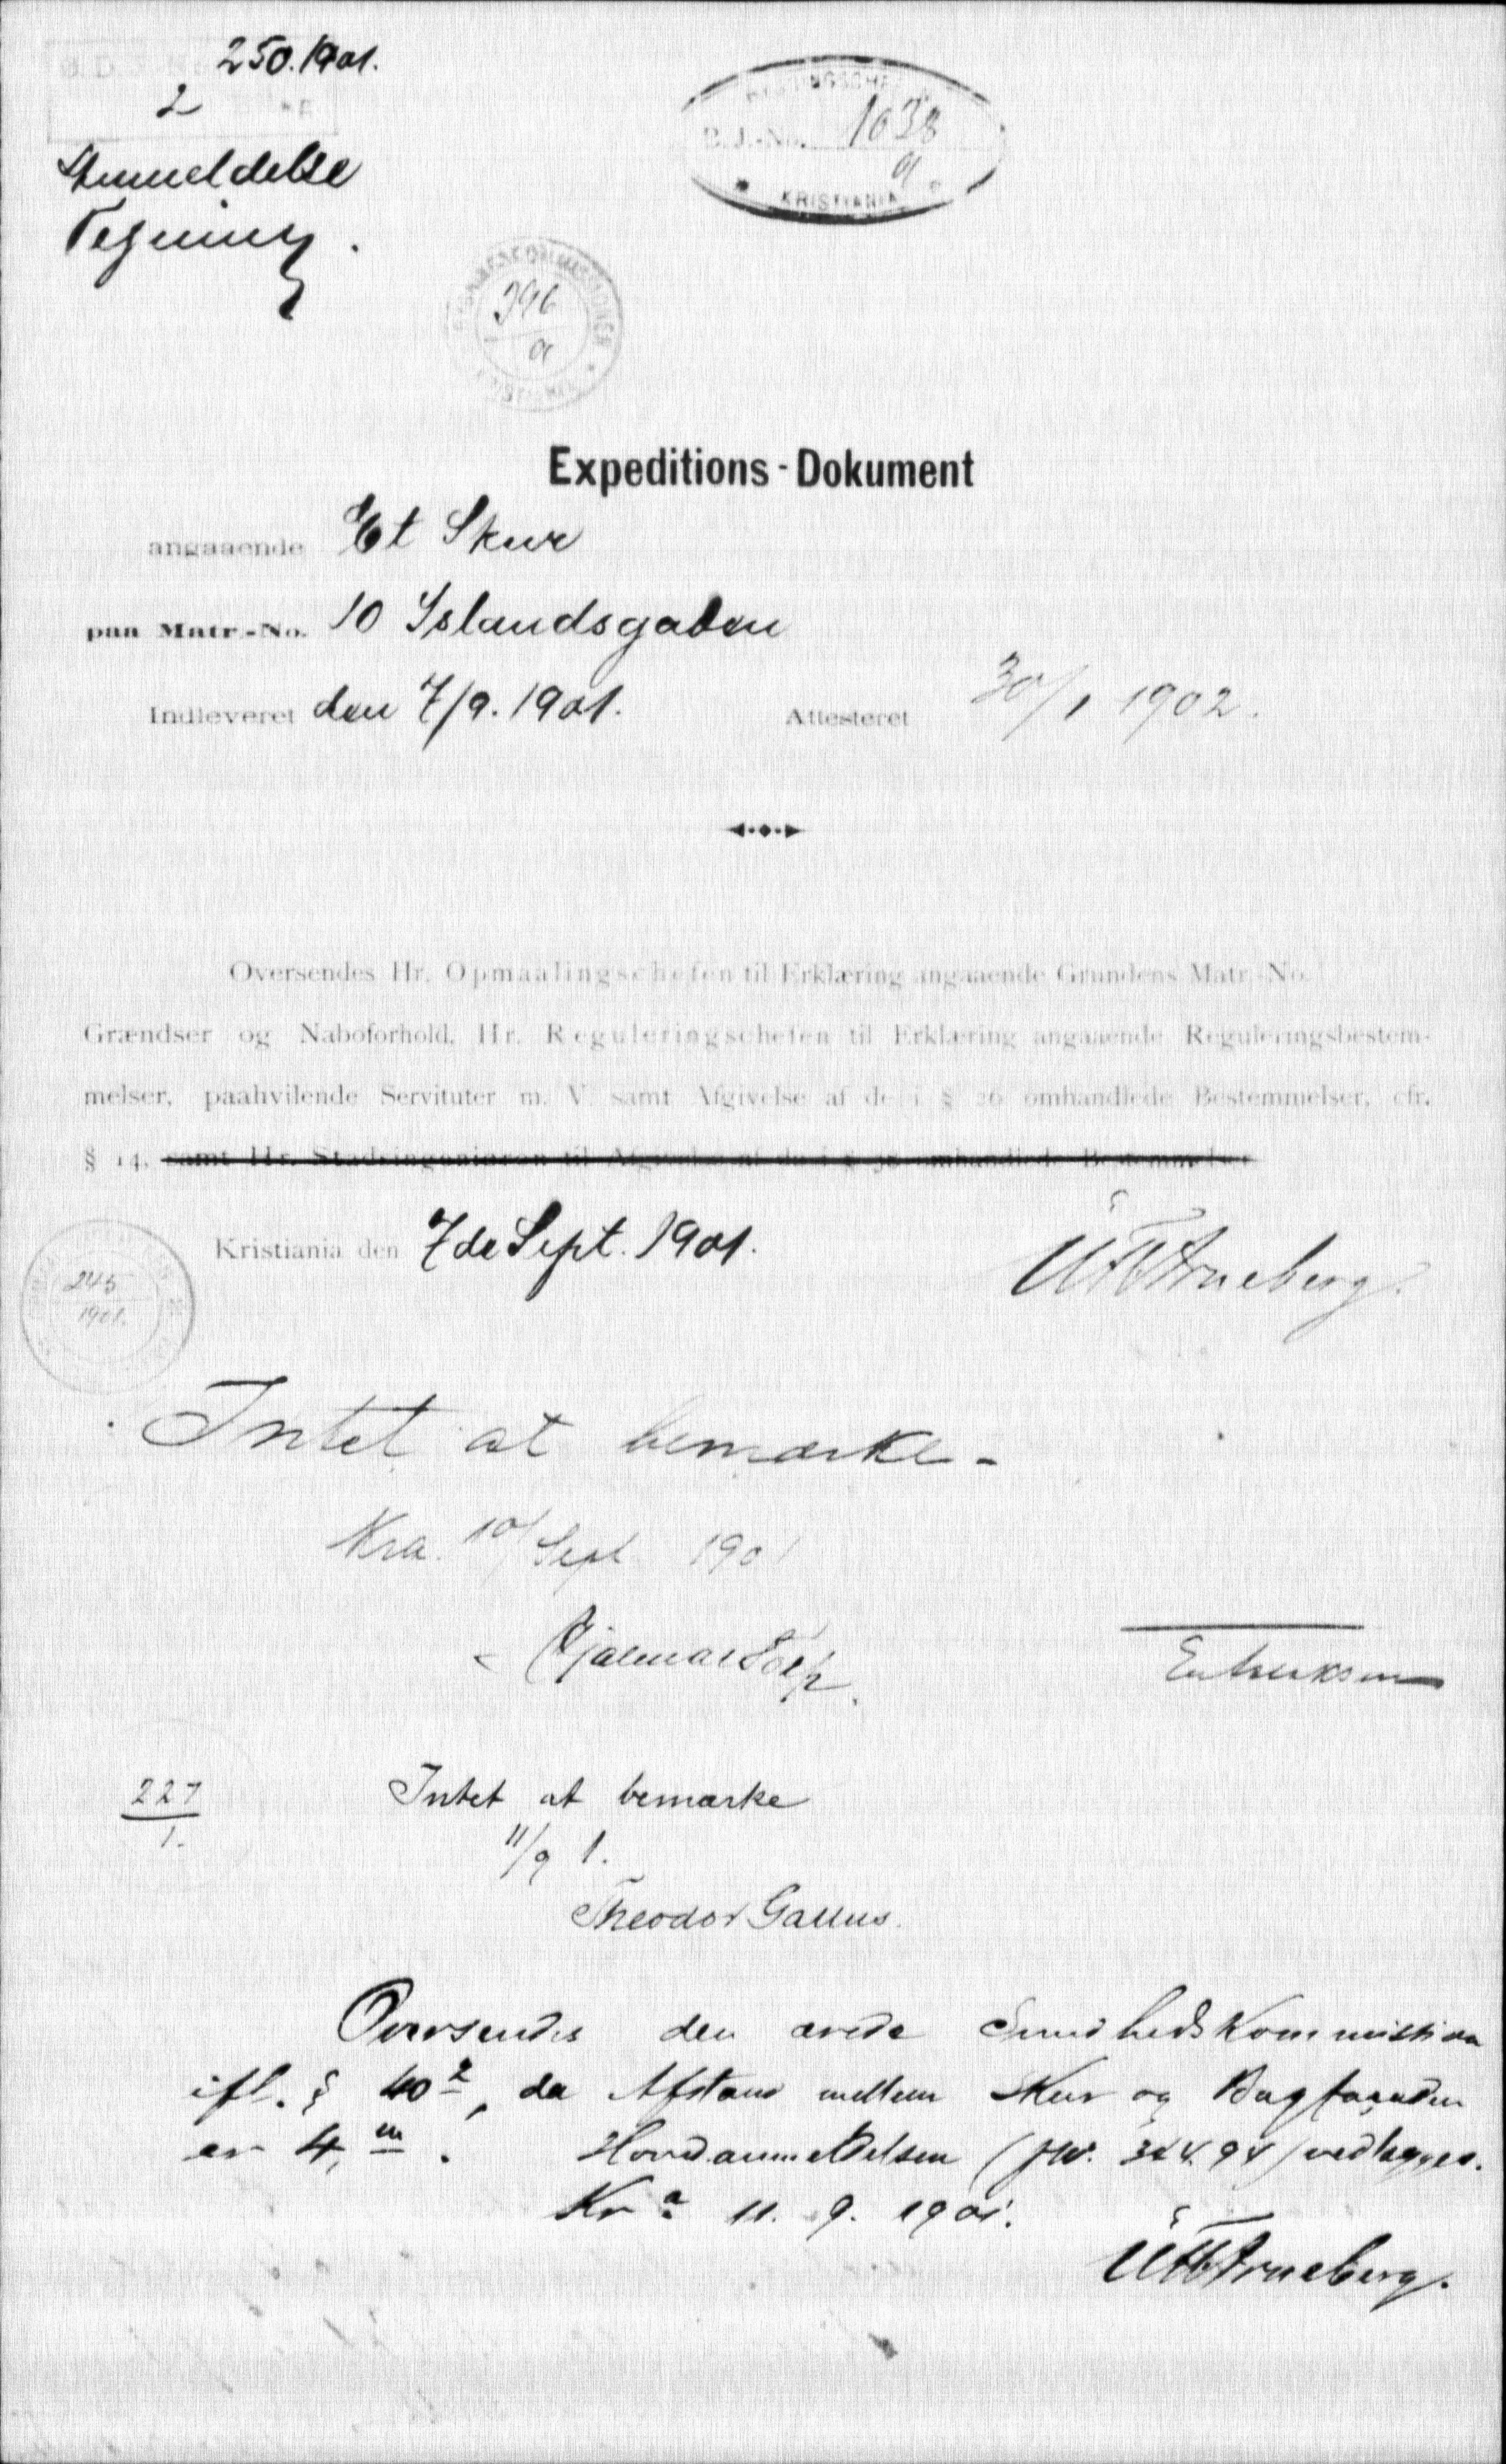 250.1901.
2
Anmeldelse
Tegning.
B. J.-No. 1038
a
KRISTIANIA
396
a
Expeditions-Dokument
angaaende Et Skur
paa Matr.-No. 10 Islandsgaden
Indleveret den 7/9. 1901. Attesteret 30/1 1902.
Oversendes Hr. Opmaalingschefen til Erklæring angaaende Grundens Matr.-No.
Grændser og Naboforhold, Hr. Reguleringschefen til Erklæring angaaende Reguleringsbestem-
melser, paahvilende Servituter m. V. samt Afgivelse af de i § 26 omhandlede Bestemmelser, cfr.
§ 14, samt Hr. Stadsingeniøren til Afgivelse af de i § omhandlede Bestemmelser
Kristiania den 7de Sept. 1901.
245
1901.
Intet at bemærke.
Kra. 10/ Sept 1901
Hjalmar Torp.
227
1.
Intet at bemærke
11/9 1.
Theodor Gallus.
Oversendes den ærede Sundhedskommission
ifl. § 40 2, da Afstand mellem Skur og Bagfasaden
er 4, m. Hovedanmeldelsen vedlægges.
Kr a 11. 9. 1901.